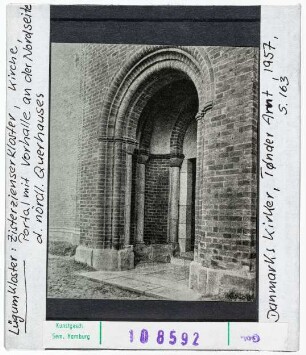 Lügumkloster: Zisterzienserkloster, Kirche,
Portal mit Vorhalle an der Nordseite
d. nördl. Querhauses
Danmarks Kirker, Tønder Amt, 1957,
S. 163
Kunstgesch.
Sem. Hamburg
108592